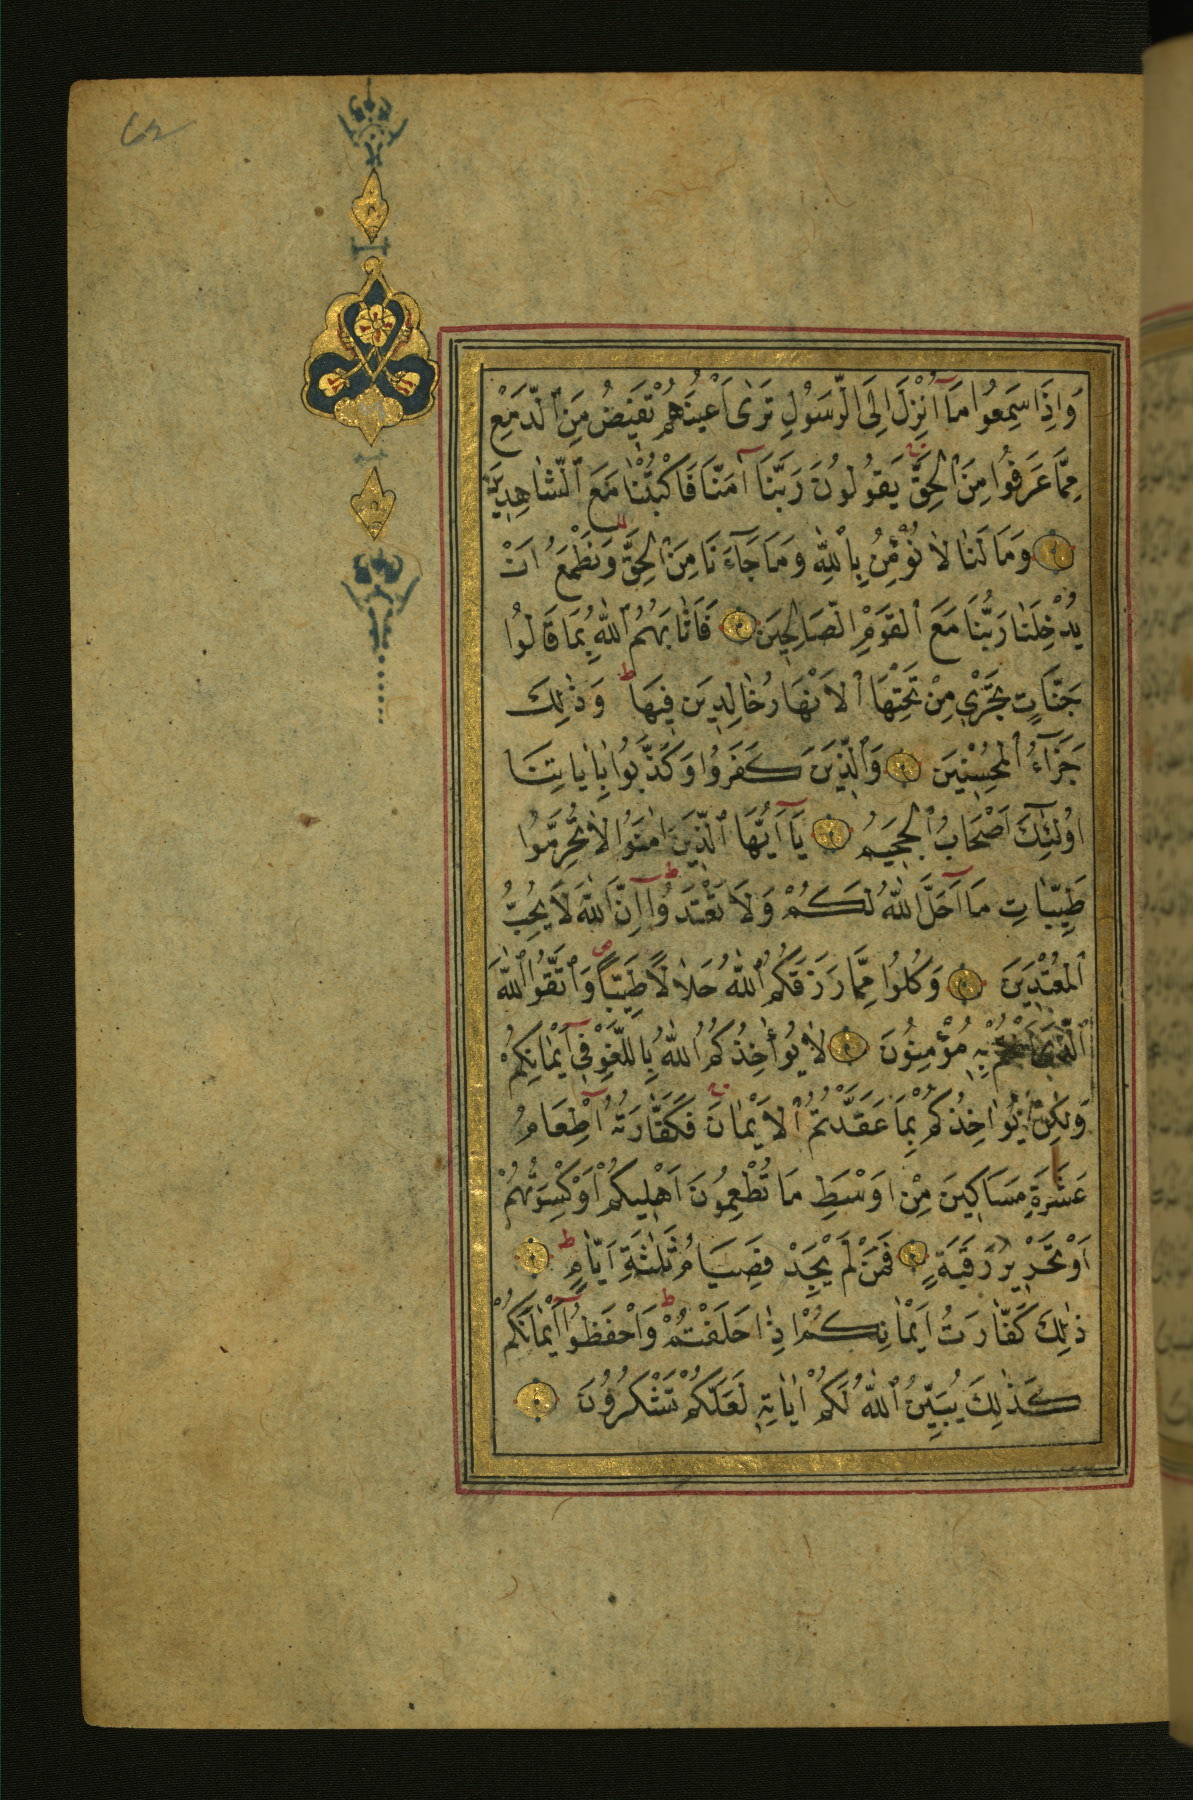 وَاِذَا سَمِعُوا مَآ اُنْزِلَ اِلَى الرَّسُولِ تَرٰى اَعْيُنَهُمْ تَفِيضُ مِنَ الدَّمْعِ
مِمَّا عَرَفُوا مِنَ الْحَقِّ يَقُولُونَ رَبَّنَا اٰمَنَّا فَاكْتُبْنَا مَعَ الشَّاهِدِينَ
وَمَا لَنَا لَا نُؤْمِنُ بِاللّٰهِ وَمَا جَآءَنَا مِنَ الْحَقِّ وَنَطْمَعُ اَنْ
يُدْخِلَنَا رَبُّنَا مَعَ الْقَوْمِ الصَّالِحِينَ فَاَثَابَهُمُ اللّٰهُ بِمَا قَالُوا
جَنَّاتٍ تَجْرِي مِنْ تَحْتِهَا الْاَنْهَارُ خَالِدِينَ فِيهَا ط وَذٰلِكَ
جَزَآءُ الْمُحْسِنِينَ وَالَّذِينَ كَفَرُوا وَكَذَّبُوا بِاٰيَاتِنَا
اُولٰئِكَ اَصْحَابُ الْجَحِيمِ يَآ اَيُّهَا الَّذِينَ اٰمَنُوا لَا تُحَرِّمُوا
طَيِّبَاتِ مَآ اَحَلَّ اللّٰهُ لَكُمْ وَلَا تَعْتَدُوا ط اِنَّ اللّٰهَ لَا يُحِبُّ
الْمُعْتَدِينَ وَكُلُوا مِمَّا رَزَقَكُمُ اللّٰهُ حَلَالًا طَيِّبًا ص وَاتَّقُوا اللّٰهَ
الَّذِي اَنْتُمْ بِهِ مُؤْمِنُونَ لَا يُؤَاخِذُكُمُ اللّٰهُ بِاللَّغْوِ فِي اَيْمَانِكُمْ
وَلٰكِنْ يُؤَاخِذُكُمْ بِمَا عَقَّدْتُمُ الْاَيْمَانَ فَكَفَّارَتُهُ اِطْعَامُ
عَشَرَةِ مَسَاكِينَ مِنْ اَوْسَطِ مَا تُطْعِمُونَ اَهْلِيكُمْ اَوْ كِسْوَتُهُمْ
اَوْ تَحْرِيرُ رَقَبَةٍ فَمَنْ لَمْ يَجِدْ فَصِيَامُ ثَلٰثَةِ اَيَّامٍ ط
ذٰلِكَ كَفَّارَةُ اَيْمَانِكُمْ اِذَا حَلَفْتُمْ ط وَاحْفَظُوا اَيْمَانَكُمْ
كَذٰلِكَ يُبَيِّنُ اللّٰهُ لَكُمْ اٰيَاتِهِ لَعَلَّكُمْ تَشْكُرُونَ